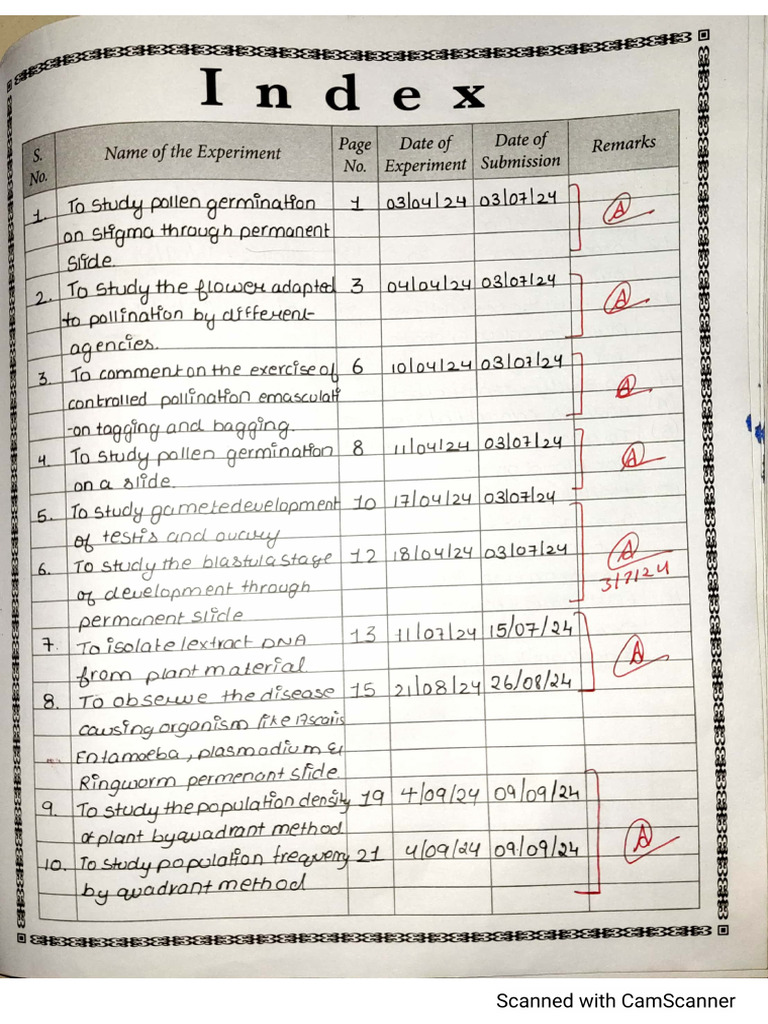 Index
S. No. Name of the Experiment Page No. Date of Experiment Date of Submission Remarks
1. To study pollen germination 1 03/04/24 03/07/24 A
on stigma through permanent
slide.
2. To study the flower adapted 3 04/04/24 03/07/24 A
to pollination by different-
agencies.
3. To comment on the exercise of 6 10/04/24 03/07/24 A
controlled pollination emasculati
-on tagging and bagging.
4. To study pollen germination 8 11/04/24 03/07/24 A
on a slide.
5. To study gamete development 10 17/04/24 03/07/24
of testis and ovary
6. To study the blastula stage 12 18/04/24 03/07/24 A
of development through 3/7/24
permanent slide
7. To isolate/extract DNA 13 11/07/24 15/07/24 A
from plant material
8. To observe the disease 15 21/08/24 26/08/24
causing organism like Ascaris
Entamoeba, plasmodium &
Ringworm permenant slide.
9. To study the population density 19 4/09/24 09/09/24
of plant by quadrant method A
10. To study population frequency 21 4/09/24 09/09/24
by quadrant method
Scanned with CamScanner